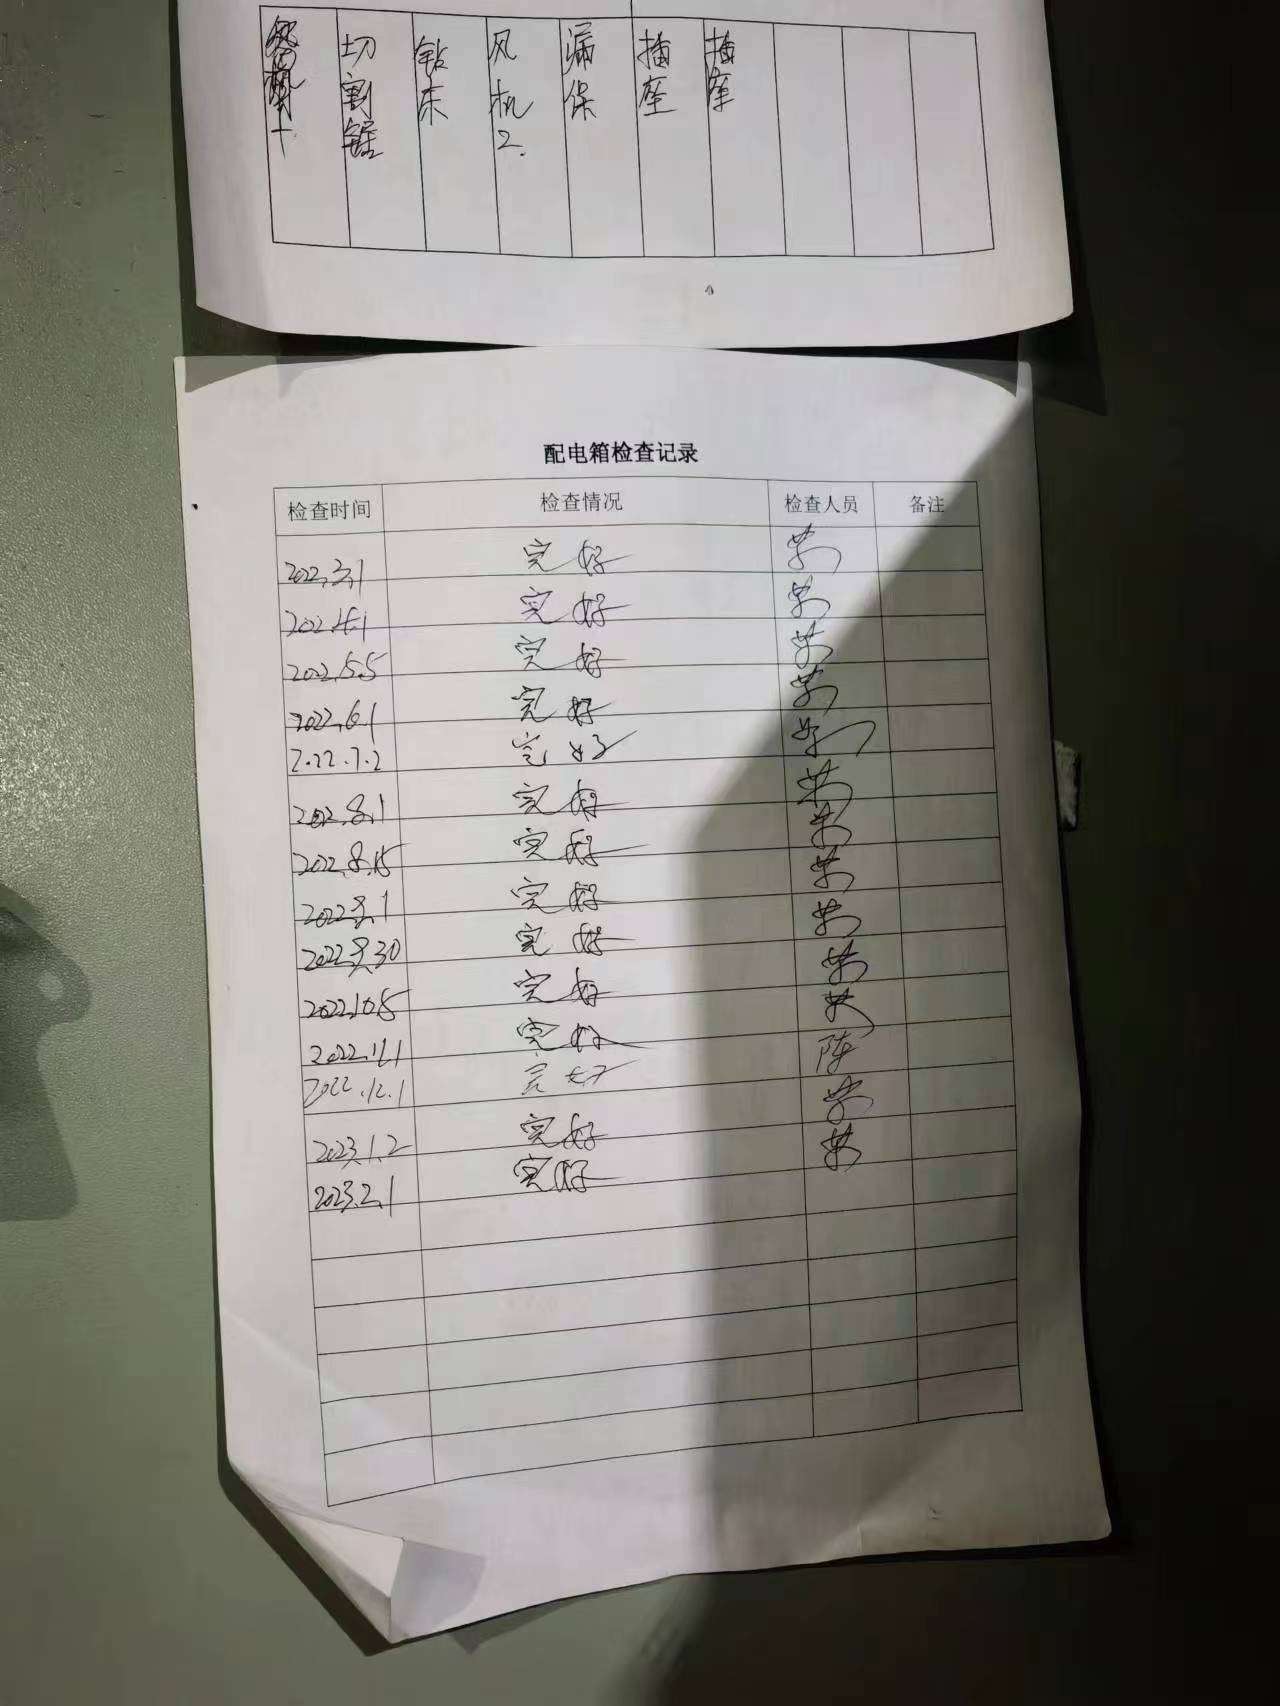 切割锯 钻床 风机2. 漏保 插座 插座
配电箱检查记录
检查时间 检查情况 检查人员 备注
2022.3.1 完好
2022.4.1 完好
2022.5.5 完好
2022.6.1 完好
2022.7.2 完好
2022.8.1 完好
2022.8.15 完好
2022.9.1 完好
2022.9.30 完好
2022.10.5 完好
2022.11.1 完好
2022.12.1 完好 陈
2023.1.2 完好
2023.2.1 完好